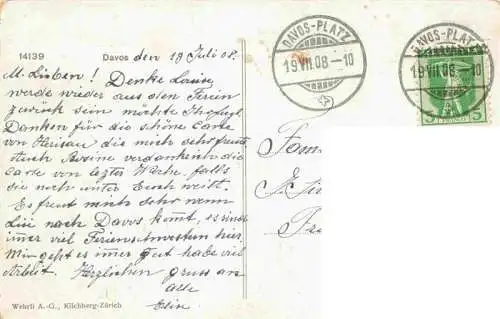 14139
Davos den 19 Juli 08.
M. Lieben! Denke Louise
werde wieder aus den Ferien
zurück sein möchte
Danken für die schöne Carte
von Herisau die mich sehr freute
Auch verdanken die
Carte von lezter Woche, falls
sie noch unter Euch weilt.
Es freut mich sehr wenn
Lisi nach Davos komt, es sind
imer viel hier.
Mir geht es imer gut habe viel
Arbeit. Herzlichen gruss an
alle
Wehrli A.-G., Kilchberg-Zürich
DAVOS-PLATZ
19.VII.08.-10
DAVOS-PLATZ
19.VII.08.-10
5 5
Fam